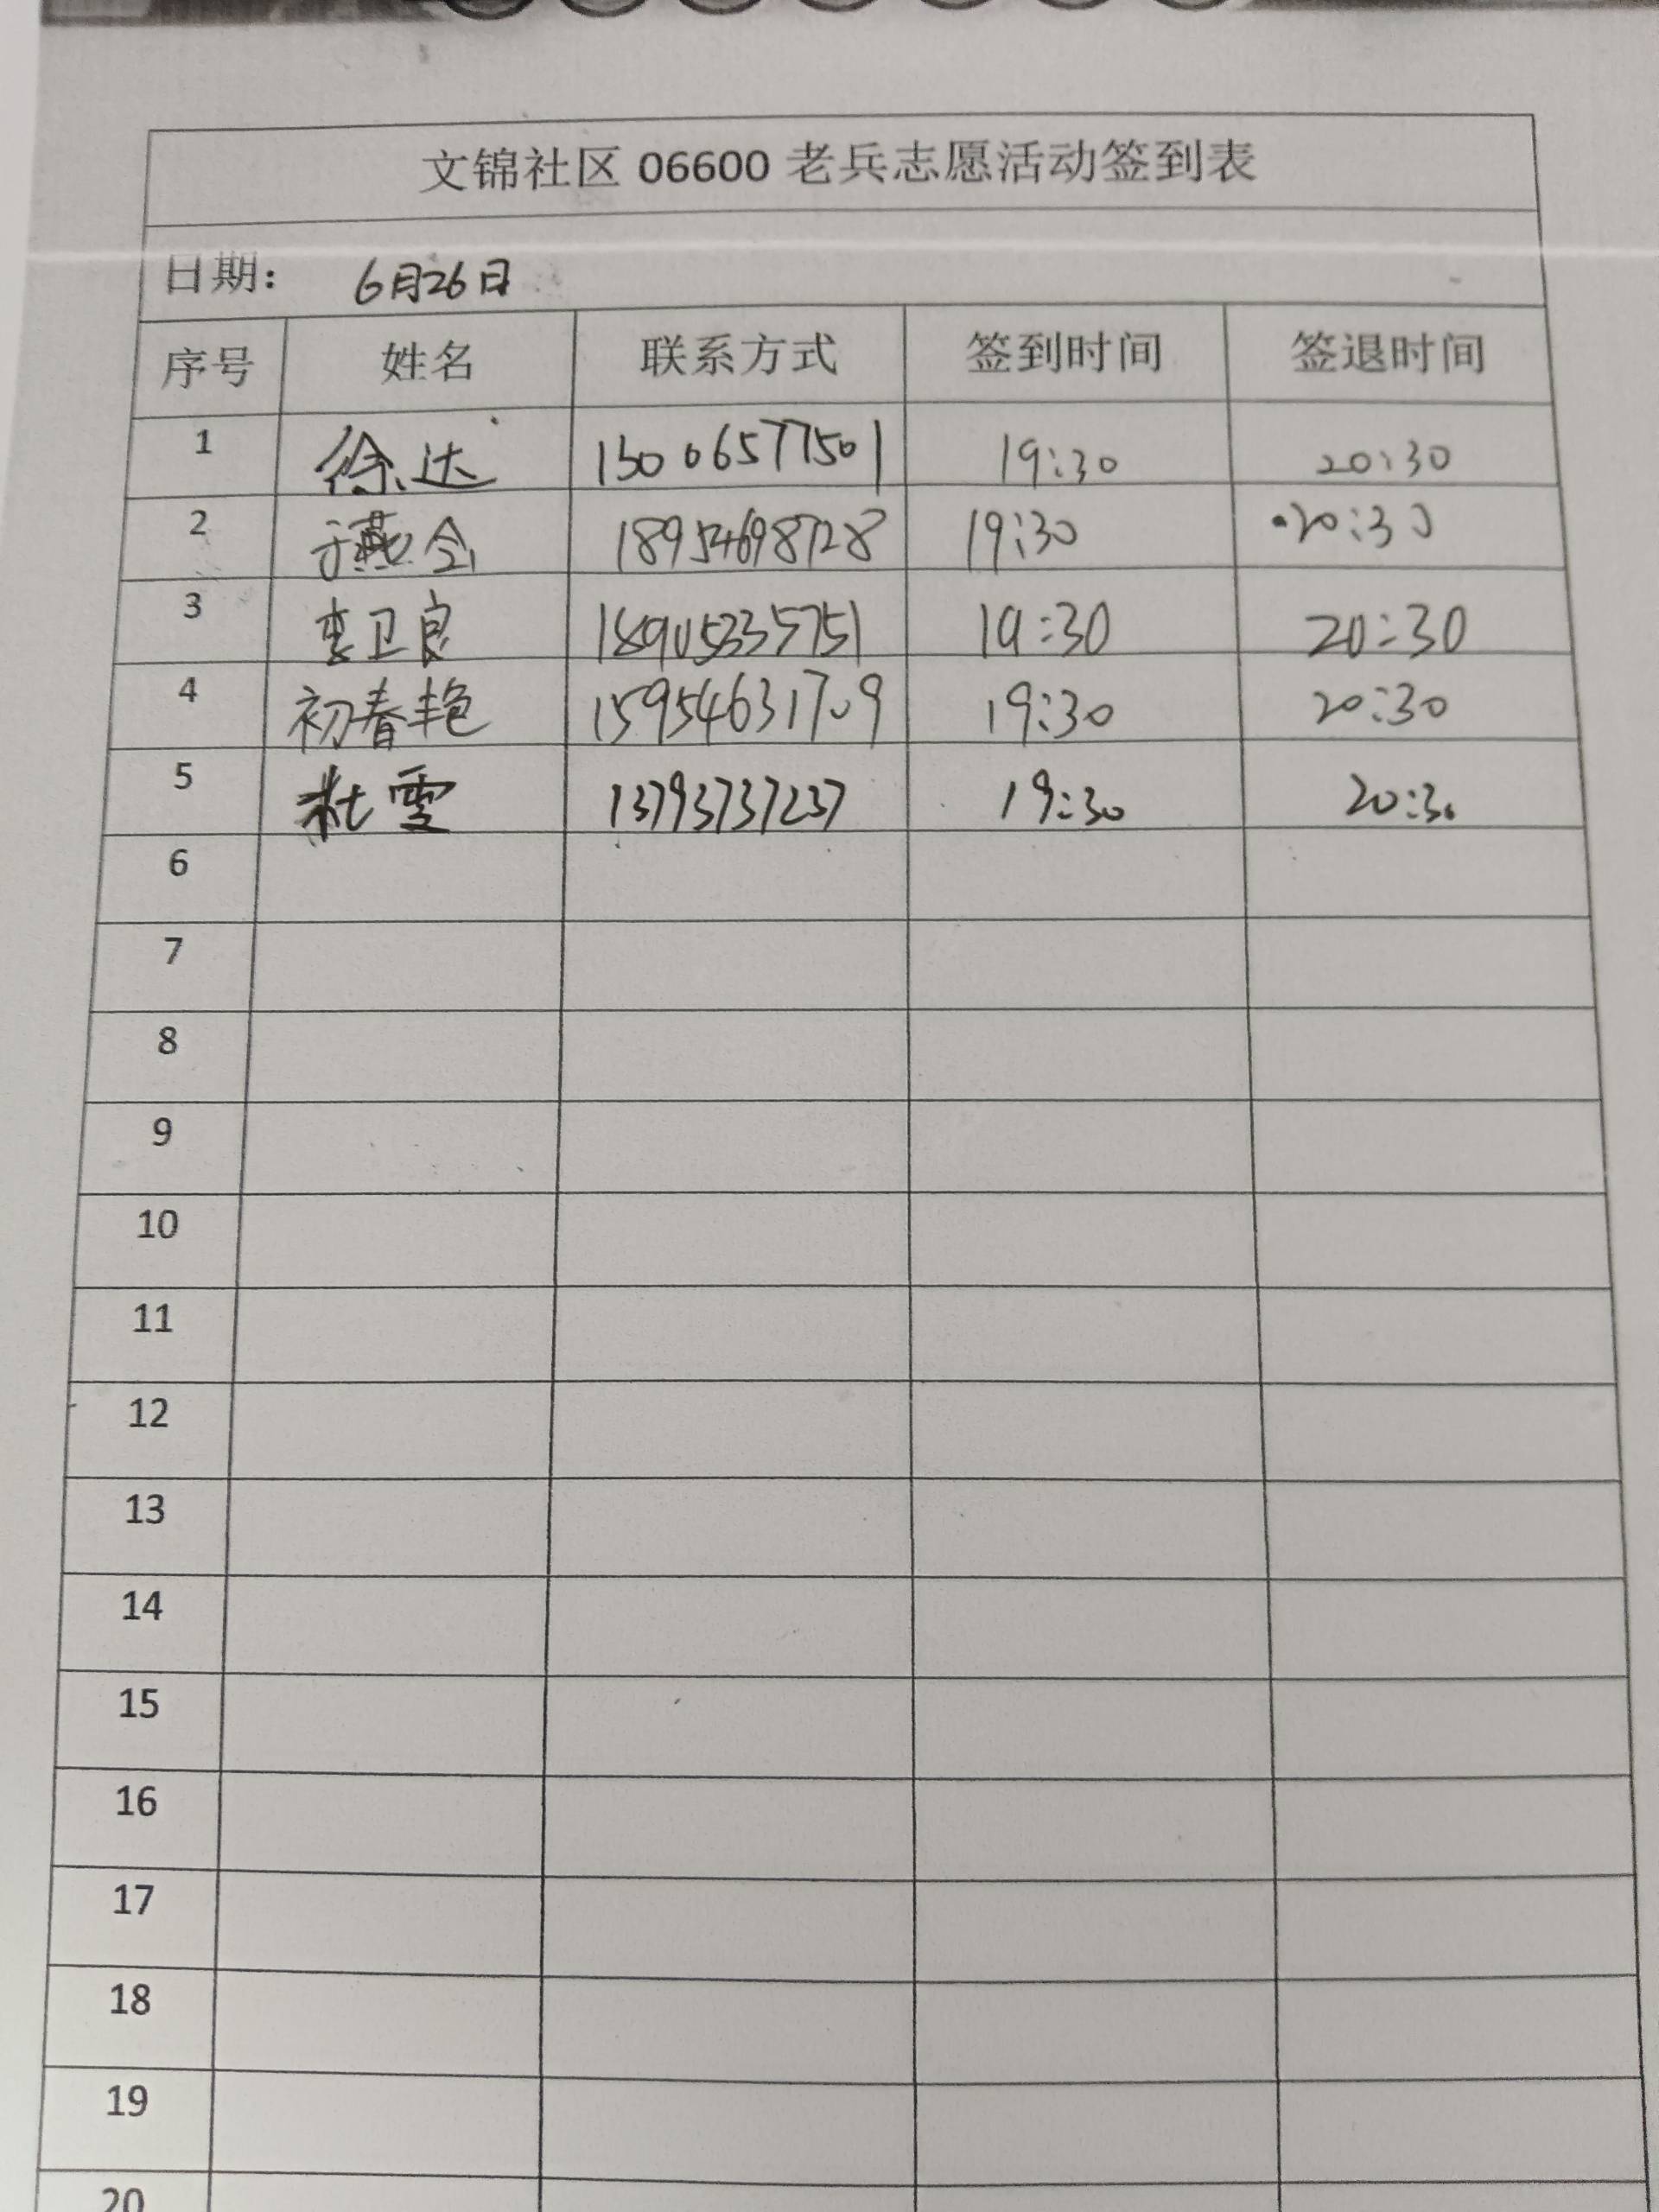 文锦社区 06600 老兵志愿活动签到表
日期： 6月26日
序号 姓名 联系方式 签到时间 签退时间
1 徐达 15006577501 19:30 20:30
2 于燕会 18954698728 19:30 20:30
3 李卫良 18905335751 19:30 20:30
4 初春艳 15954631709 19:30 20:30
5 杜雪 13793737237 19:30 20:30
6
7
8
9
10
11
12
13
14
15
16
17
18
19
20